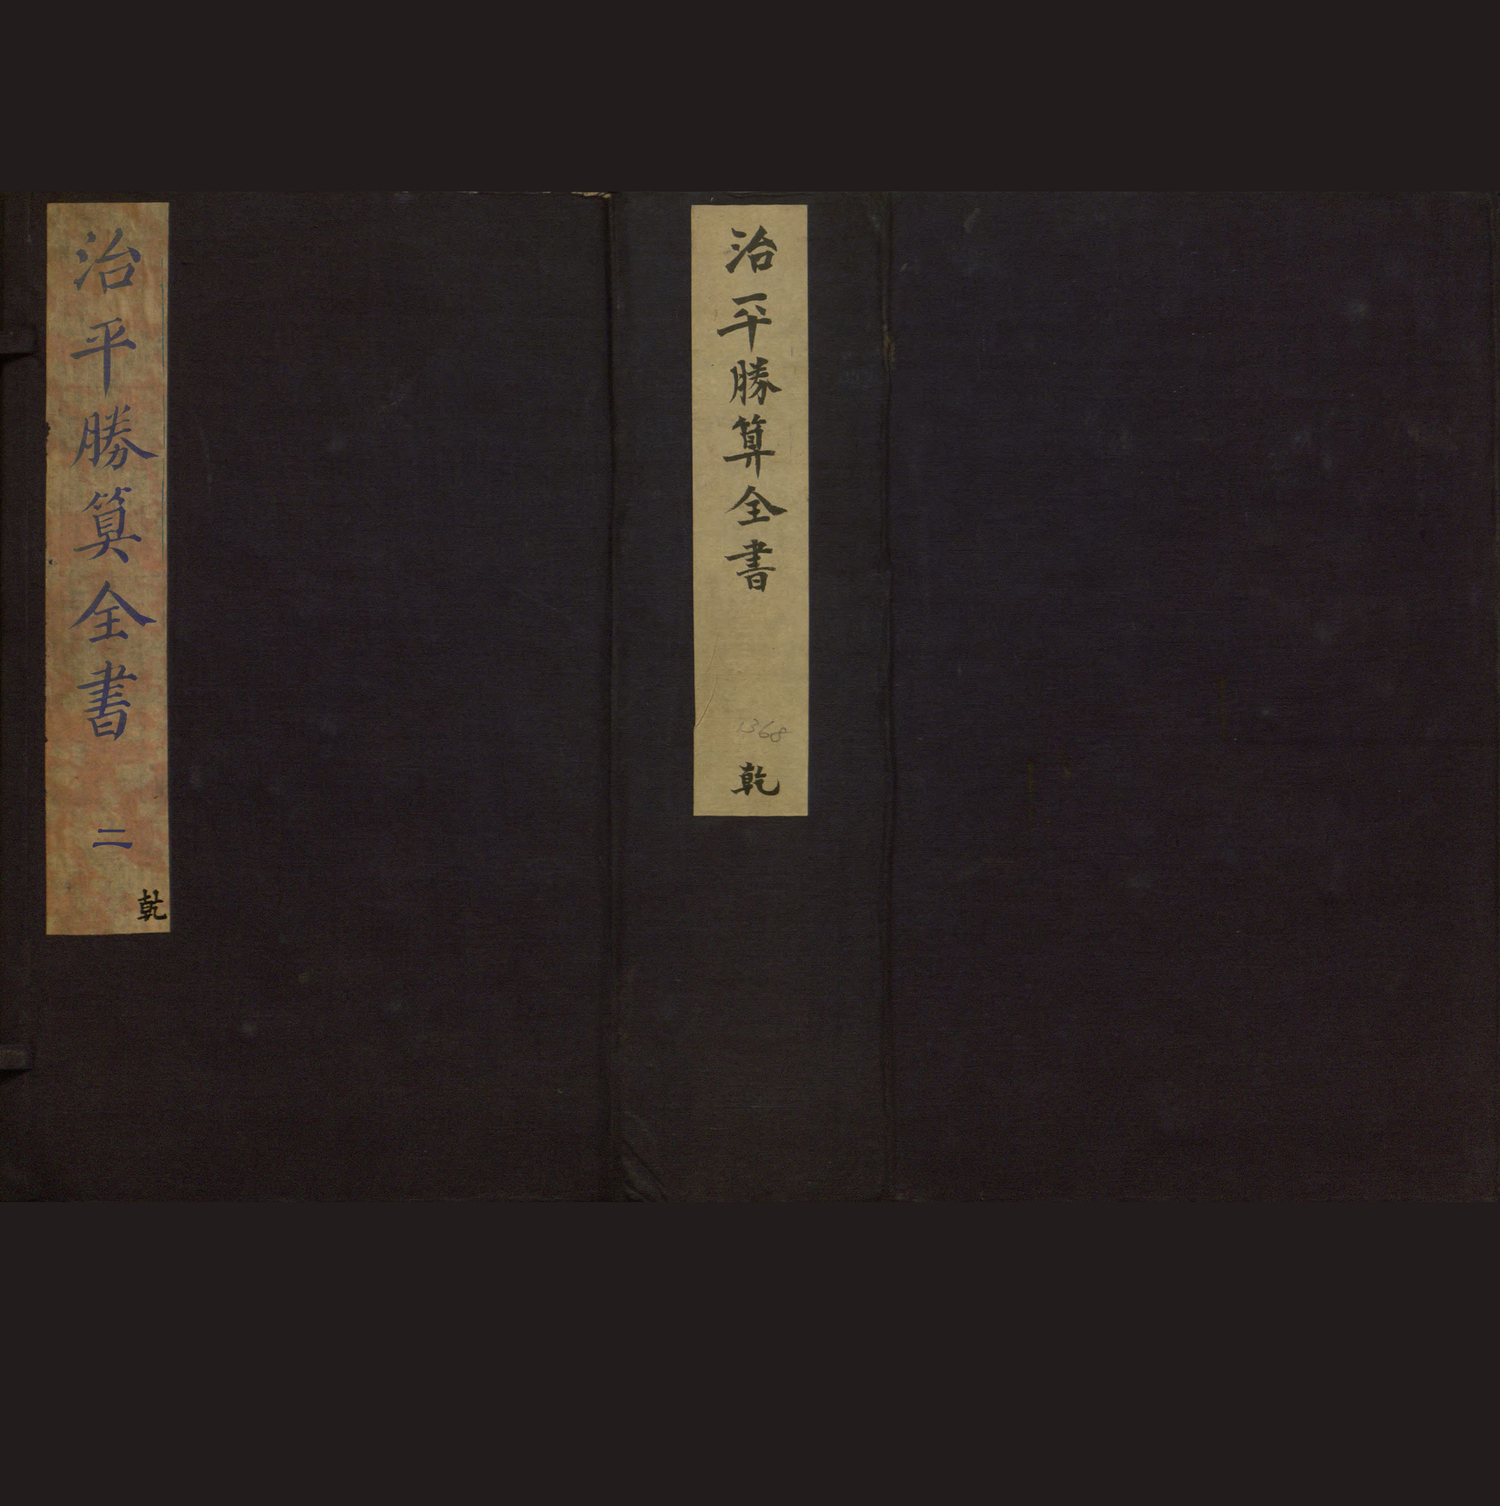 治平勝算全書
1368
乾
治平勝算全書
二
乾